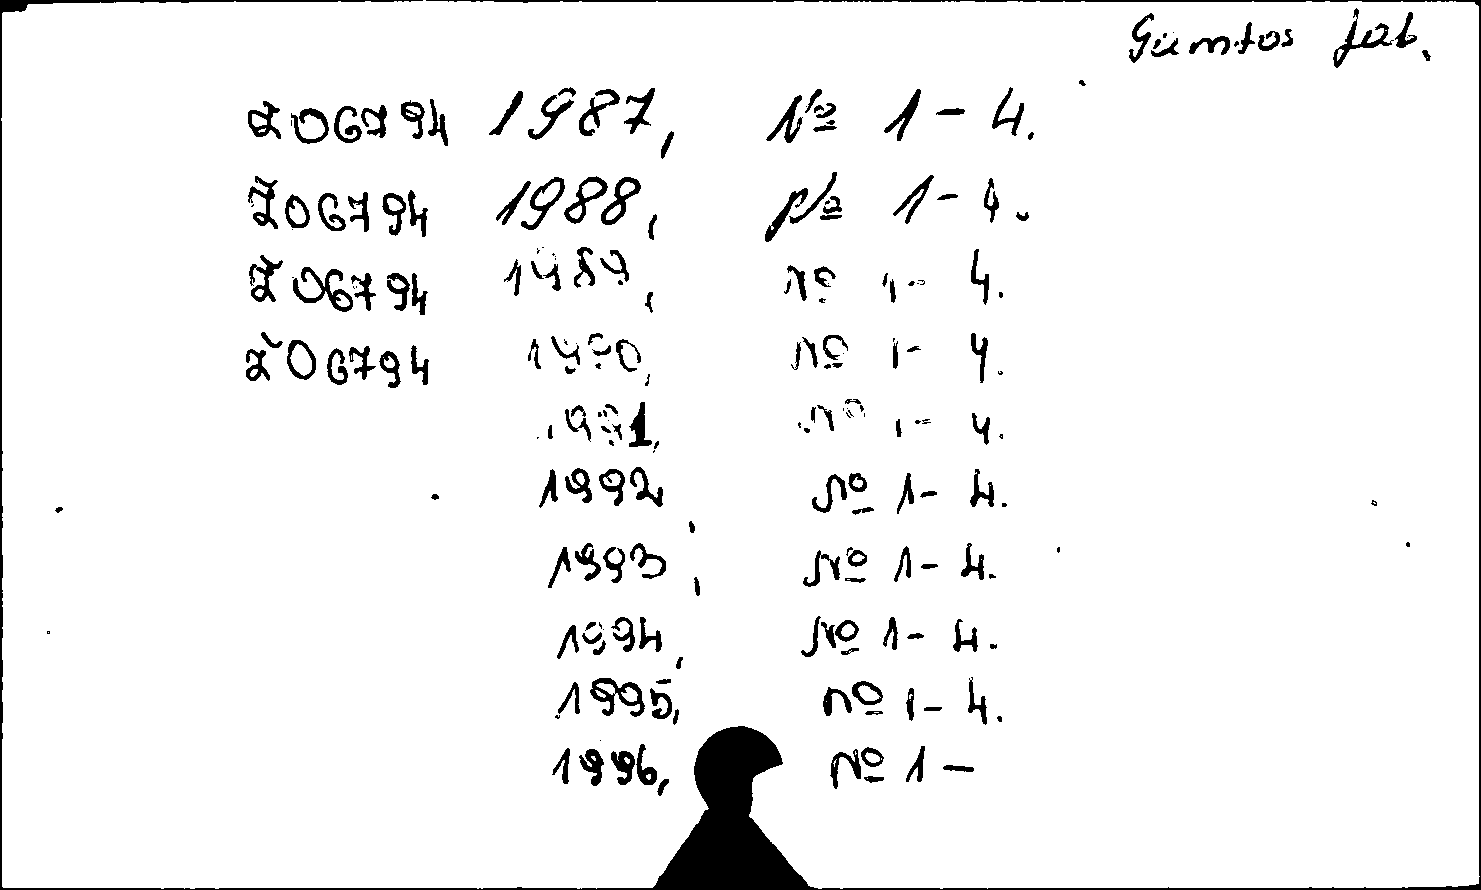 Gamtos fab.
Ž06794 1987, № 1-4.
Ž06794 1988, № 1-4.
Ž06794 1989, № 1-4.
Ž06794 1990, № 1-4.
1991, № 1-4.
1992, № 1-4.
1993, № 1-4.
1994, № 1-4.
1995, № 1-4.
1996, № 1-